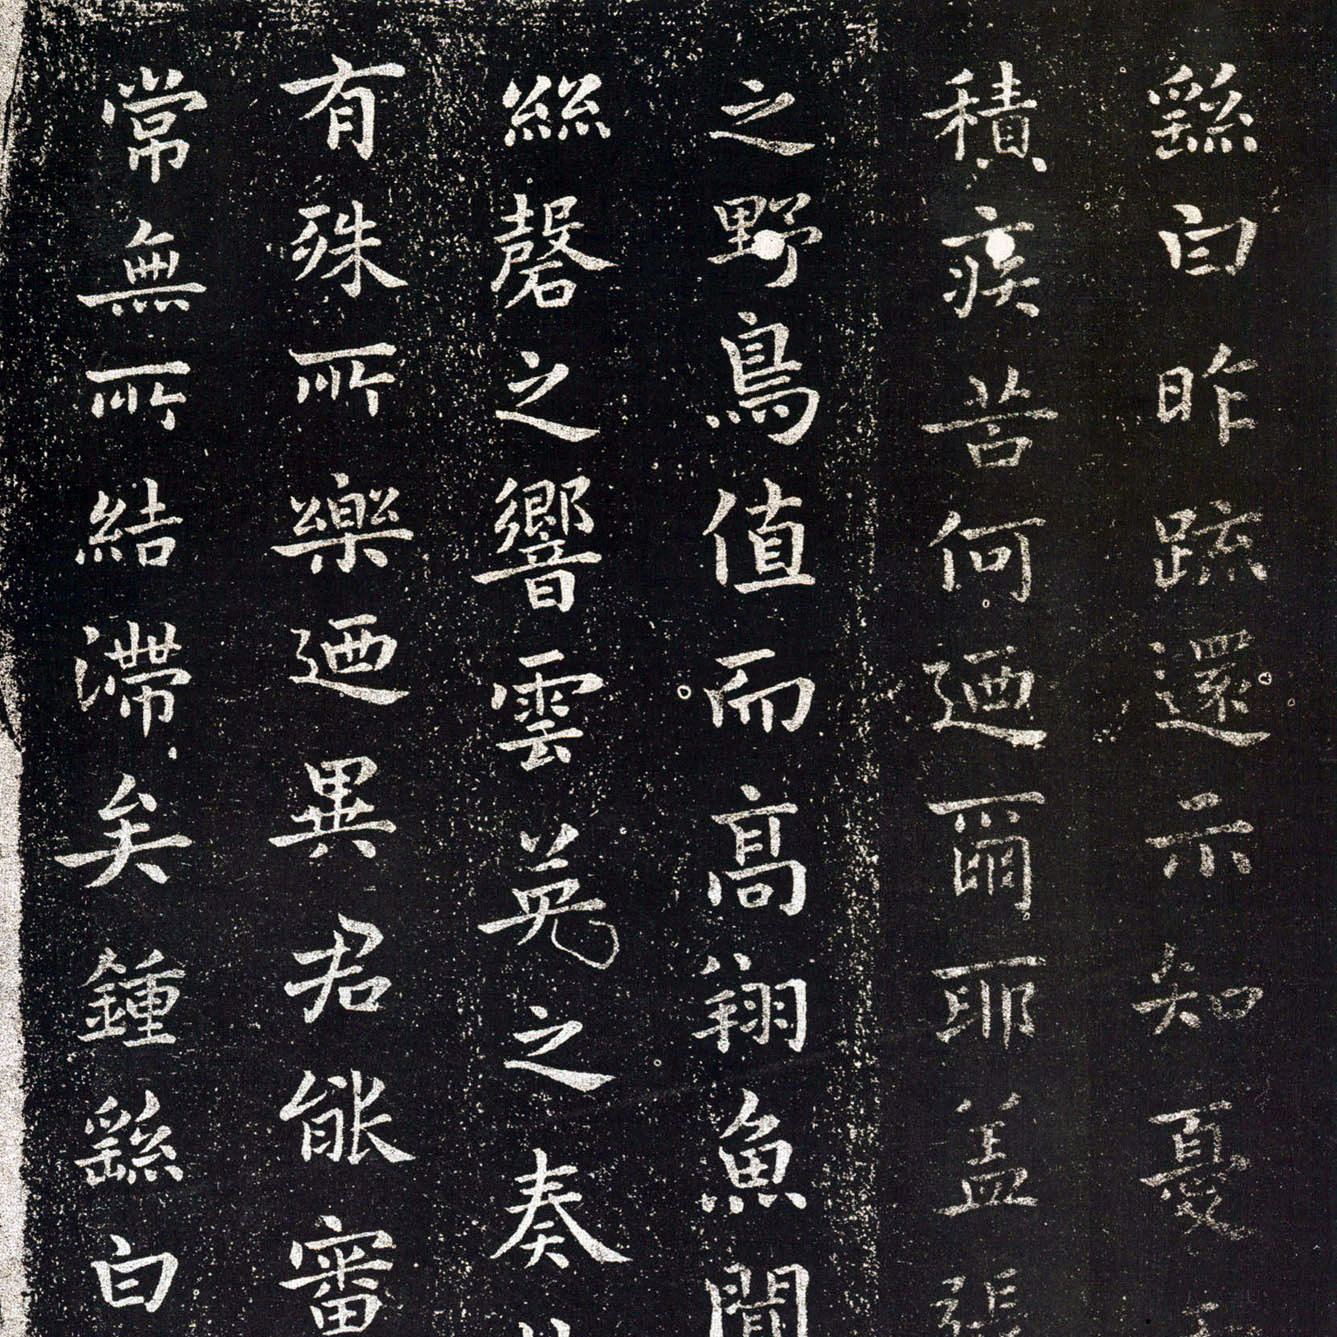 繇白昨疏還示知憂
積疾苦何迺爾耶蓋張
之野鳥值而高翔魚聞
絲磬之響雲英之奏
有殊所樂迺異君能審
常無所結滯矣鍾繇白